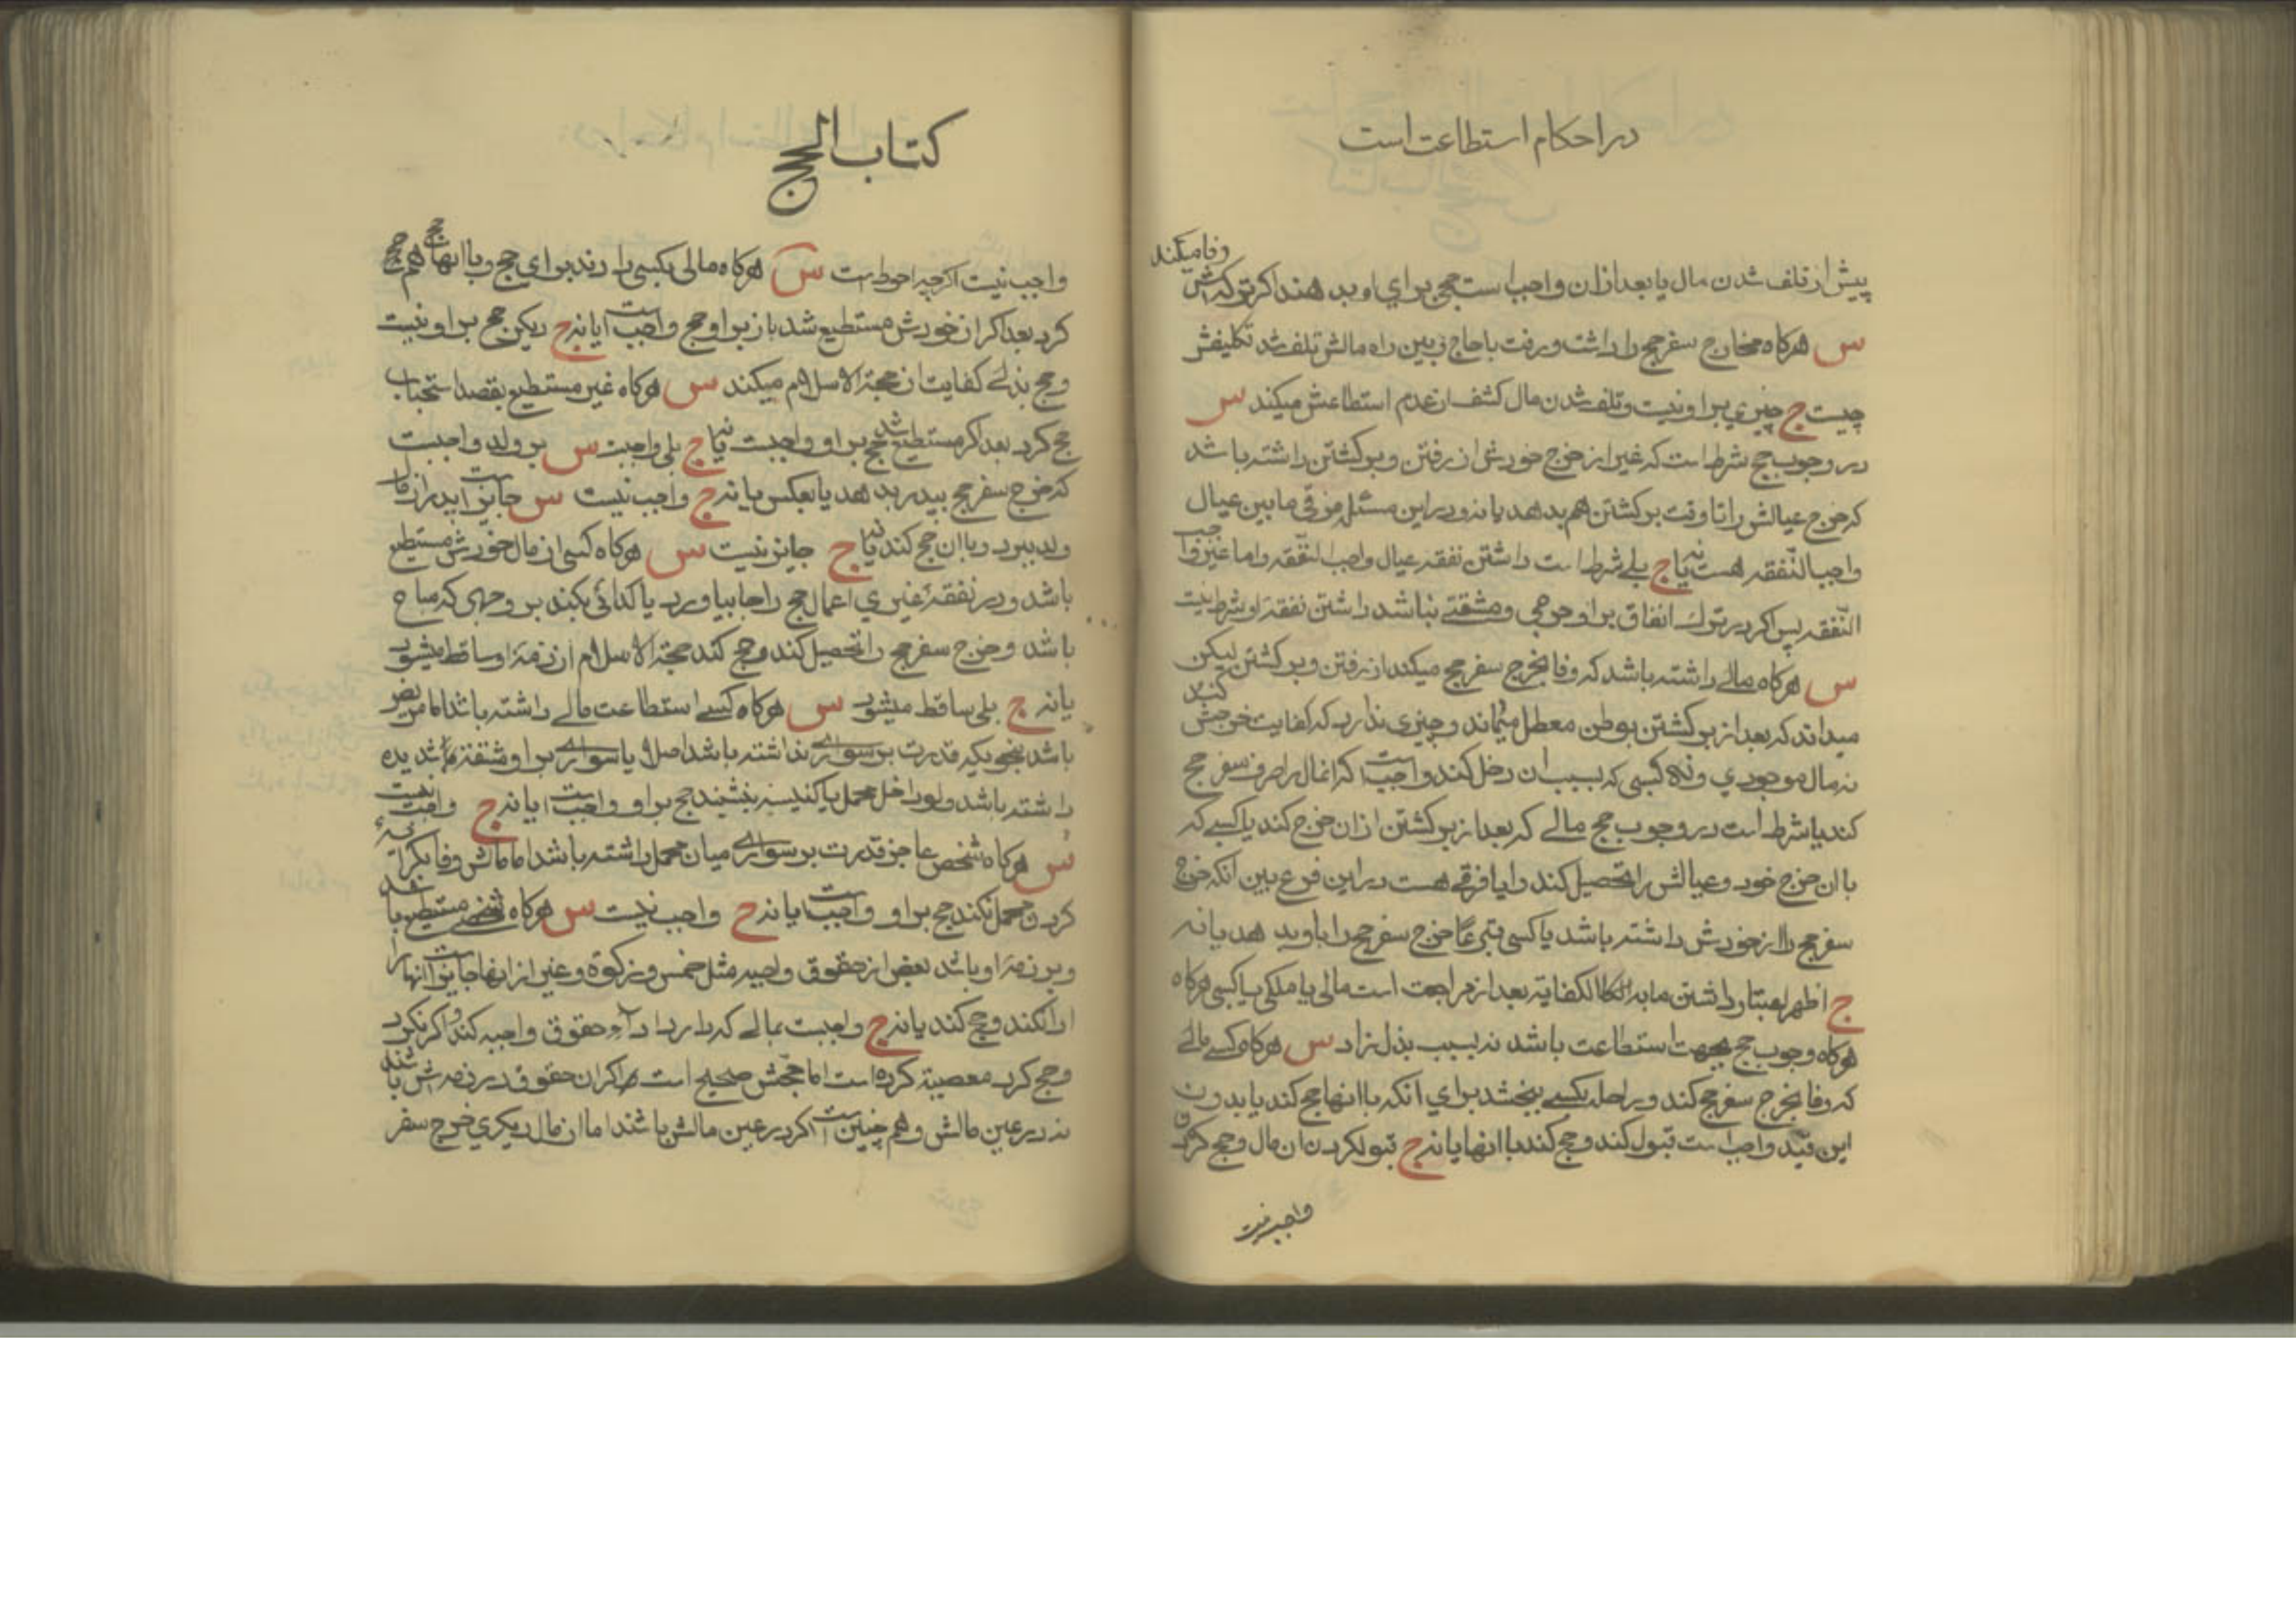 در احکام استطاعت است
پیش از تلف شدن مال یا بعد ازان واجب است حج برای او بدهند اکر ترکه‌اش وفا میکند
س هرکاه مخارج سفر حج را داشت و رفت با حاج در بین راه مالش تلف شد تکلیفش
چیست ج چیزی بر او نیست و تلف شدن مال کشف از عدم استطاعتش میکند س
در وجوب حج شرط است که غیر از خرج خودش از رفتن و برکشتن داشته باشد
که خرج عیالش را تا وقت برکشتن هم بدهد یا نه و در این مسئله فرقی مابین عیال
واجب النّفقه هست یا نه ج بلے شرط است داشتن نفقه عیال واجب النّفقه و اما غیر واجب
النّفقه پس اکر در ترك انفاق بر او حرجی و مشقتے نباشد داشتن نفقه او شرط نیست
س هرکاه مالے داشته باشد که وفا بخرج سفر حج میکند از رفتن و برکشتن لیکن
میداند که بعد از برکشتن بوطن معطل میماند و چیزی ندارد که کفایت خرجش کند
نه مال موجودی و نه کسبی که بسبب ان دخل کند واجب است که انمال را صرف سفر حج
کند یا شرط است در وجوب حج مالے که بعد از برکشتن ازان خرج کند یا کسبے که
با ان خرج خود و عیالش را تحصیل کند و ایا فرقے هست در این فرع بین انکه خرج
سفر حج را از خودش داشته باشد یا کسی تبرعًا خرج سفر حج را باو بدهد یا نه
ج اظهر اعتبار داشتن ما به الکفایة بعد از مراجعت است مالی یا ملکی یا کسبی هرکاه
هرکاه وجوب حج بجهت استطاعت باشد نه بسبب بذل زاد س هرکاه کسے مالے
که وفا بخرج سفر حج کند و راحله بکسے ببخشد برای انکه با انها حج کند یا بدون
این قید واجب است قبول کند و حج کند با انها یا نه ج قبول کردن ان مال و حج کردن
واجب نیست
کتاب الحج
واجب نیست اکرچه احوط است س هرکاه مالی بکسی دادند برای حج و با انها هم حج
کرد بعد اکر از خودش مستطیع شد باز بر او حج واجب است یا نه ج دیکر حج بر او نیست
و حج بذلے کفایت از حجة الاسلام میکند س هرکاه غیر مستطیع بقصد استحباب
حج کرد بعد اکر مستطیع شد حج بر او واجبست یا نه ج بلی واجبست س بر ولد واجبست
که خرج سفر حج بپدر بدهد یا بعکس یا نه ج واجب نیست س جایز است پدر از مال
ولد ببرد و با ان حج کند یا نه ج جایز نیست س هرکاه کسی از مال خودش مستطیع
باشد و در نفقهٔ غیری اعمال حج را جا بیاورد یا کدائی بکند بر وجهی که مباح
باشد و خرج سفر حج را تحصیل کند و حج کند حجة الاسلام از ذمهٔ او ساقط میشود
یا نه ج بلی ساقط میشود س هرکاه کسے استطاعت مالے داشته باشد اما مریض
باشد بنحویکه قدرت بر سوارے نداشته باشد اصلا یا سوارے بر او مشقة شدیده
داشته باشد ولو داخل محمل یا کنیسه بنشیند حج بر او واجب است یا نه ج واجب نیست
س هرکاه شخص عاجز قدرت بر سوارے میان محمل داشته باشد اما مالش وفا بکرایه
کردن محمل نکند حج بر او واجب است یا نه ج واجب نیست س هرکاه شخصے مستطیع باشد
و بر ذمهٔ او باشد بعض از حقوق واجبه مثل خمس و زکوة و غیر از اینها جایز است انها را
ادا نکند و حج کند یا نه ج واجبست بمالے که دارد اداء حقوق واجبه کند و اکر نکرد
و حج کرد معصیة کرده است اما حجّش صحیح است اکر ان حقوق در ذمه‌اش باشند
نه در عین مالش و هم چنین است اکر در عین مالش باشند اما از مال دیکری خرج سفر